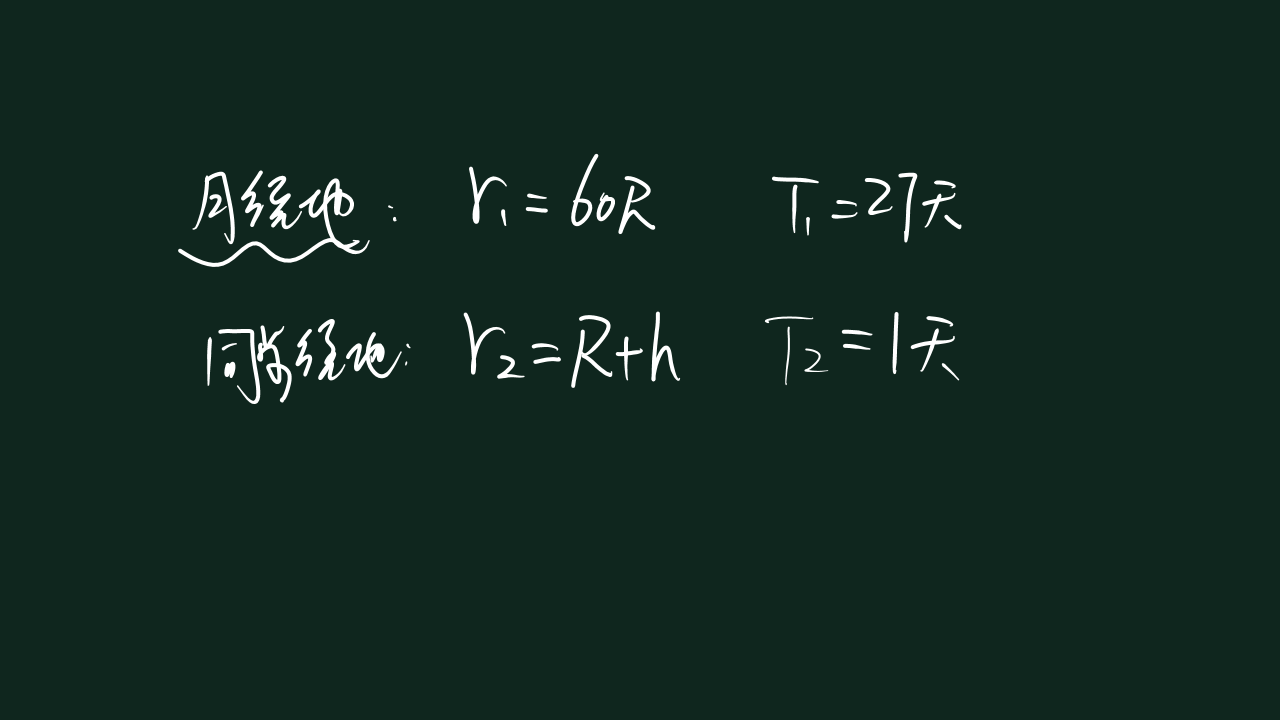 月绕地： r₁=60R T₁=27天
同步绕地： r₂=R+h T₂=1天